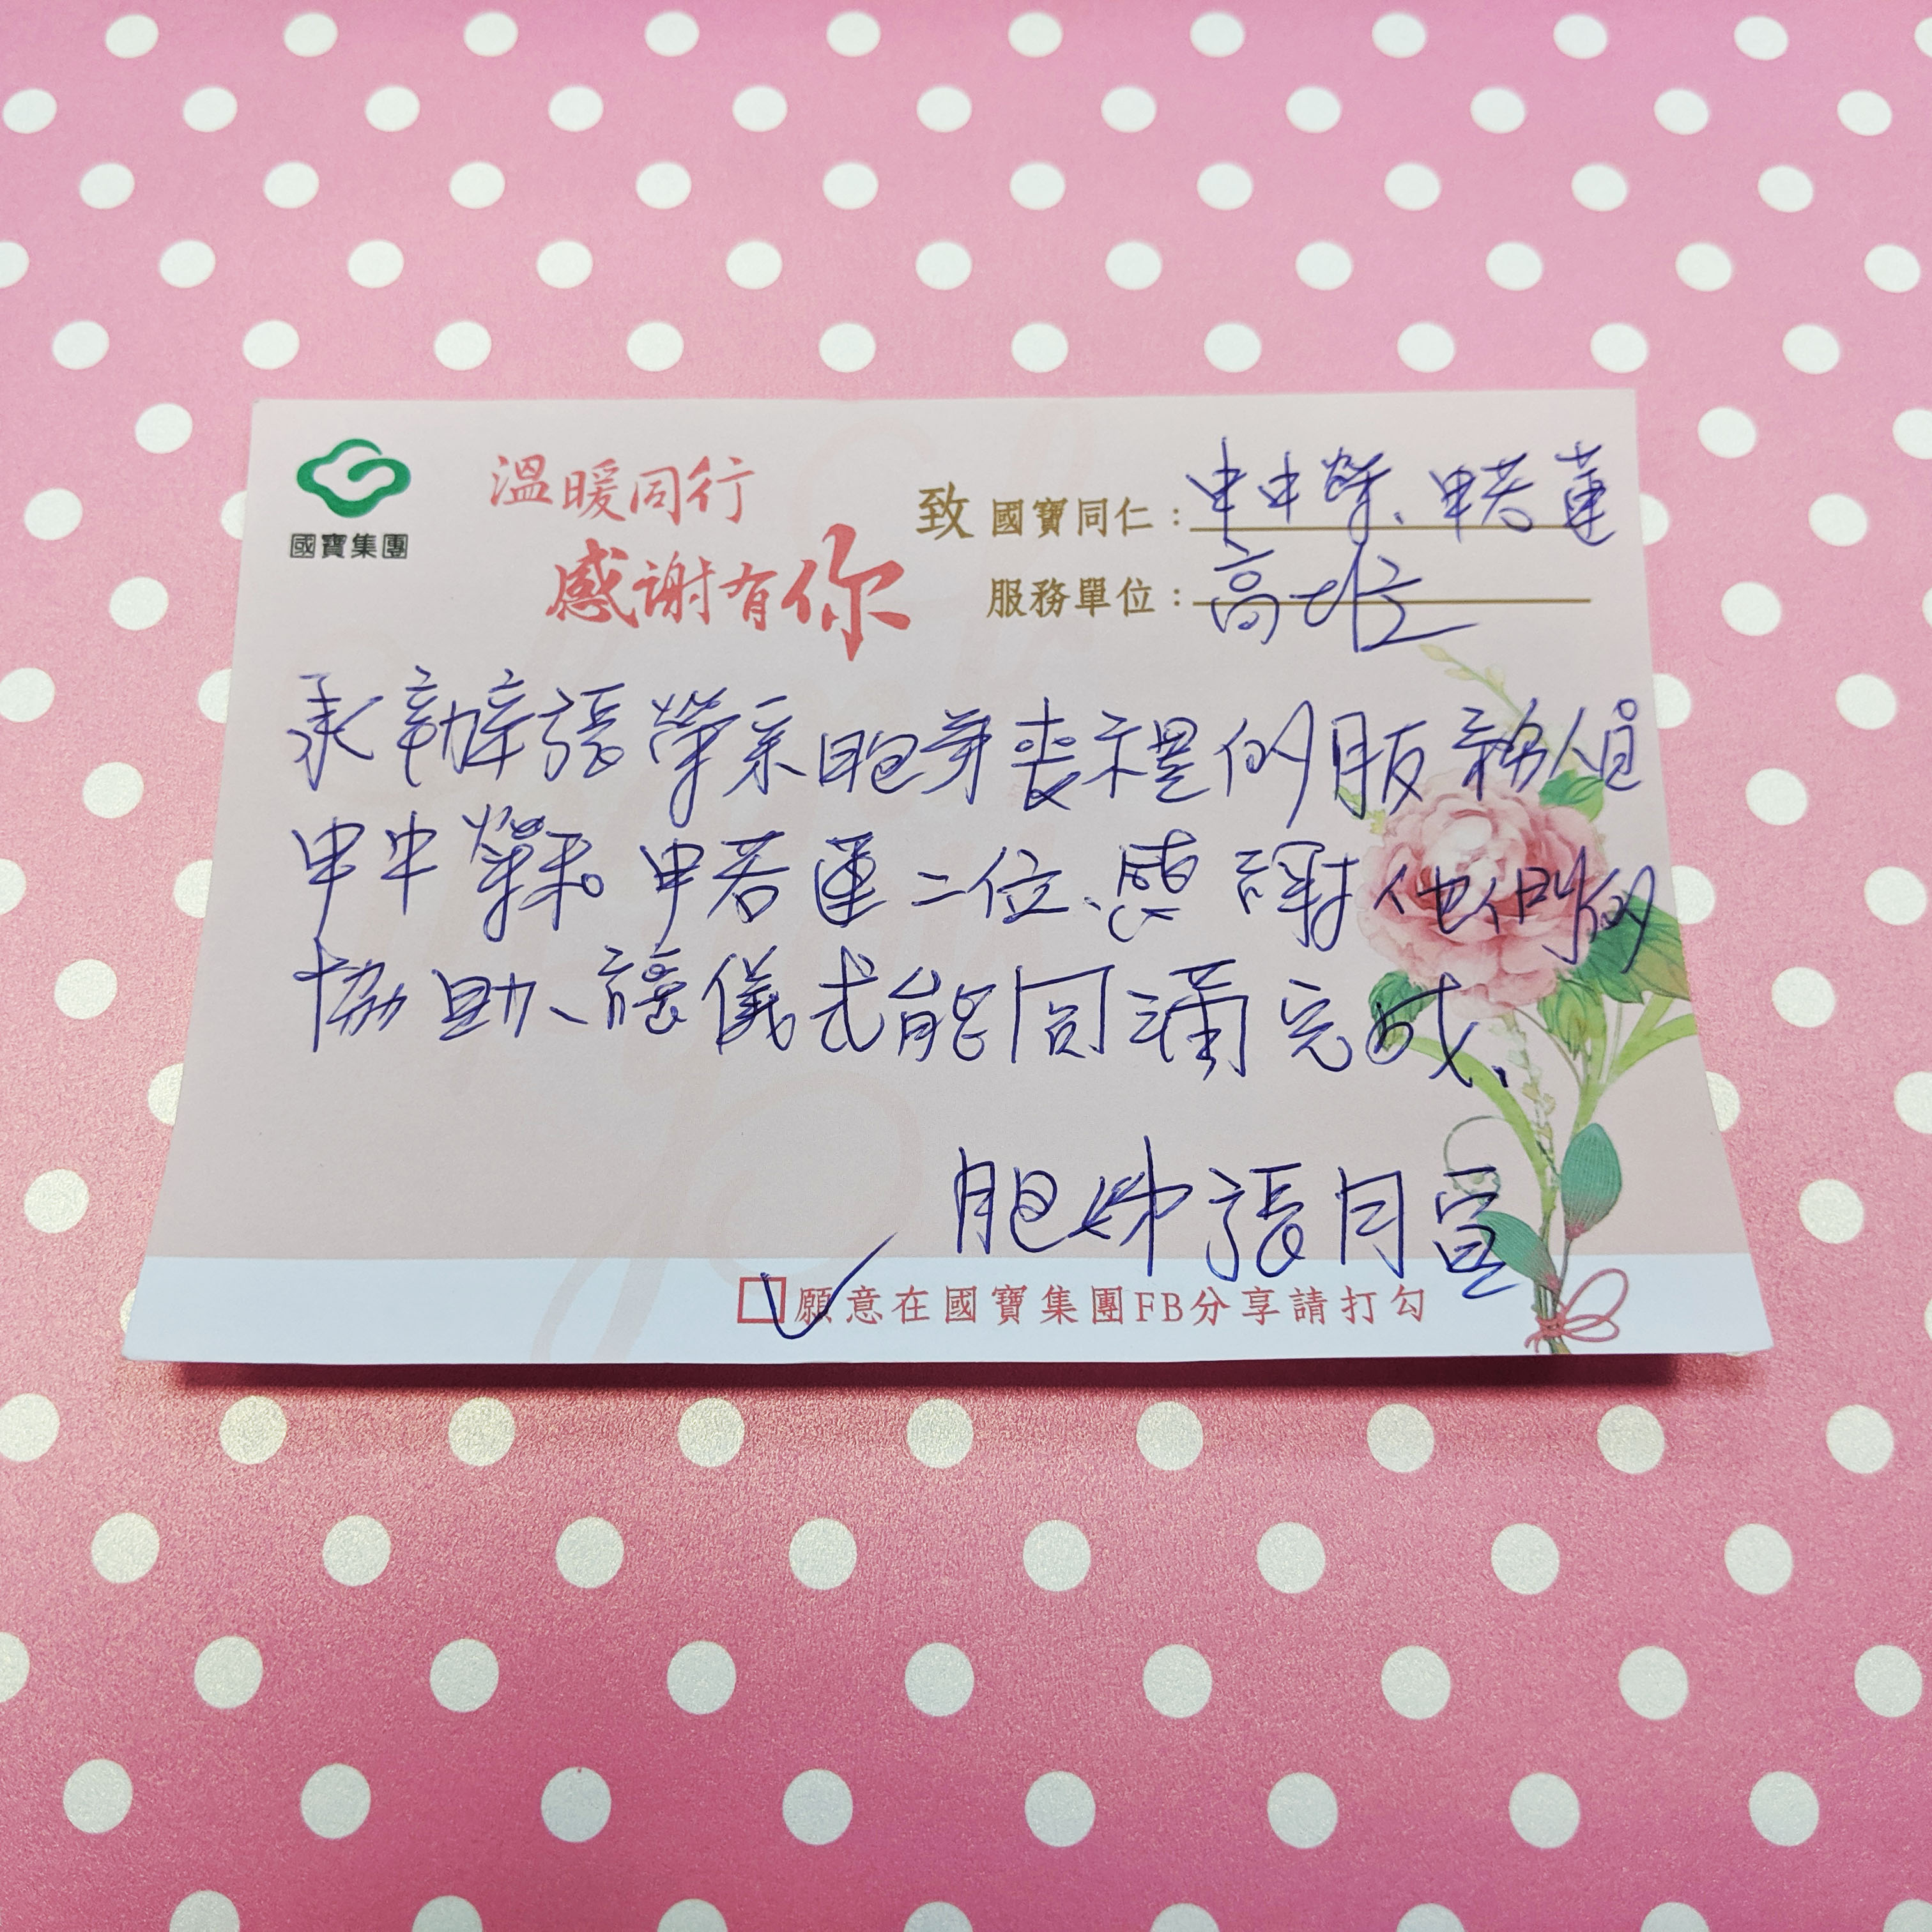 國寶集團
溫暖同行
感謝有你
致 國寶同仁：申中榮、申若蓮
服務單位：高雄
承辦張榮 胞弟喪禮的服務組
申中榮 申若蓮二位、感謝他們的
協助、讓儀式能圓滿完成、
胞姊張月宣
願意在國寶集團FB分享請打勾